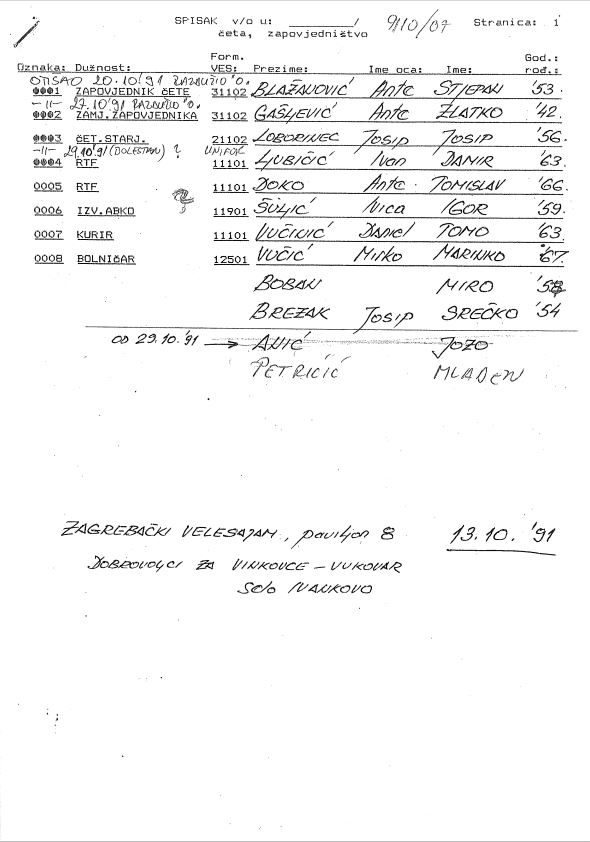 SPISAK v/o u: ________/ 9/10/07 Stranica: 1
četa, zapovjedništvo
Form. God.:
Oznaka: Dužnost: VES: Prezime: Ime oca: Ime: rođ.:
OTIŠAO 20.10.'91 RAZDUŽIO "O.
0001 ZAPOVJEDNIK ČETE 31102 BLAŽANOVIĆ Ante STJEPAN '53.
-||- 27.10.'91 RAZDUŽIO "O.
0002 ZAMJ.ZAPOVJEDNIKA 31102 GAŠLJEVIĆ Ante ZLATKO '42.
0003 ČET.STARJ. 21102 LOBORINEC Josip JOSIP '56.
-||- 29.10.'91 (DOLESTAN) ? UNIFOR
0004 RTF 11101 LJUBIČIĆ Ivan DAMIR '63.
0005 RTF 11101 ĐOKO Ante TOMISLAV '66.
0006 IZV.ABKO 11901 ŠULJIĆ Ivica IGOR '59.
0007 KURIR 11101 VUČINIĆ Daniel TOMO '63.
0008 BOLNIČAR 12501 VUČIĆ Mirko MARINKO '67.
BOBAN MIRO
BREZAK Josip SREČKO '54
OD 29.10.'91 → ANIĆ JOZO
PETRIČIĆ MLADEN
ZAGREBAČKI VELESAJAM, paviljon 8 13.10.'91
DOBROVOLJCI ZA VINKOVCE – VUKOVAR
Selo IVANKOVO